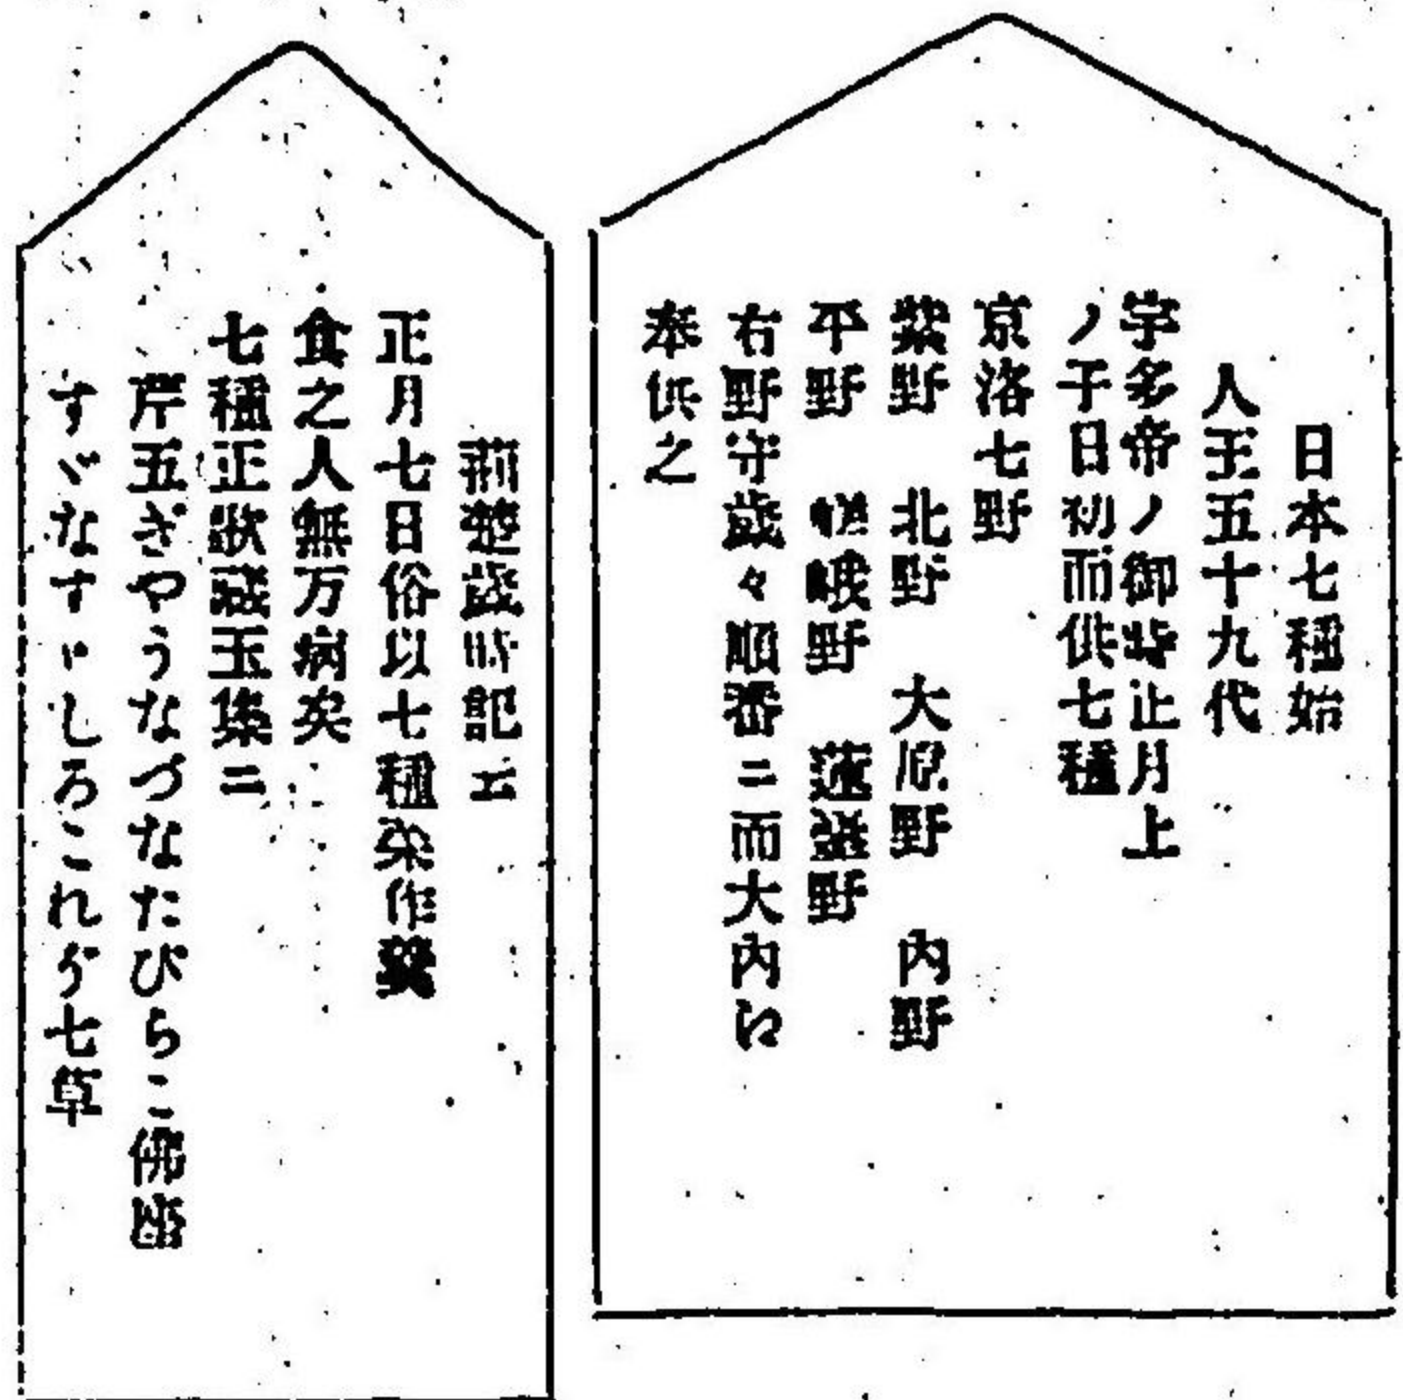 日本七種始
人王五十九代
宇多帝ノ御時正月上
ノ子日初而供七種
京洛七野
紫野 北野 大原野 內野
平野 嵯峨野 蓮臺野
右野守歲々順番ニ而大內江
奉供之
荊楚歲時記云
正月七日俗以七種菜作羹
食之人無万病矣
七種正歌藏玉集ニ
芹五ぎやうなづなたびらこ佛座
すゞなすゞしろこれが七草